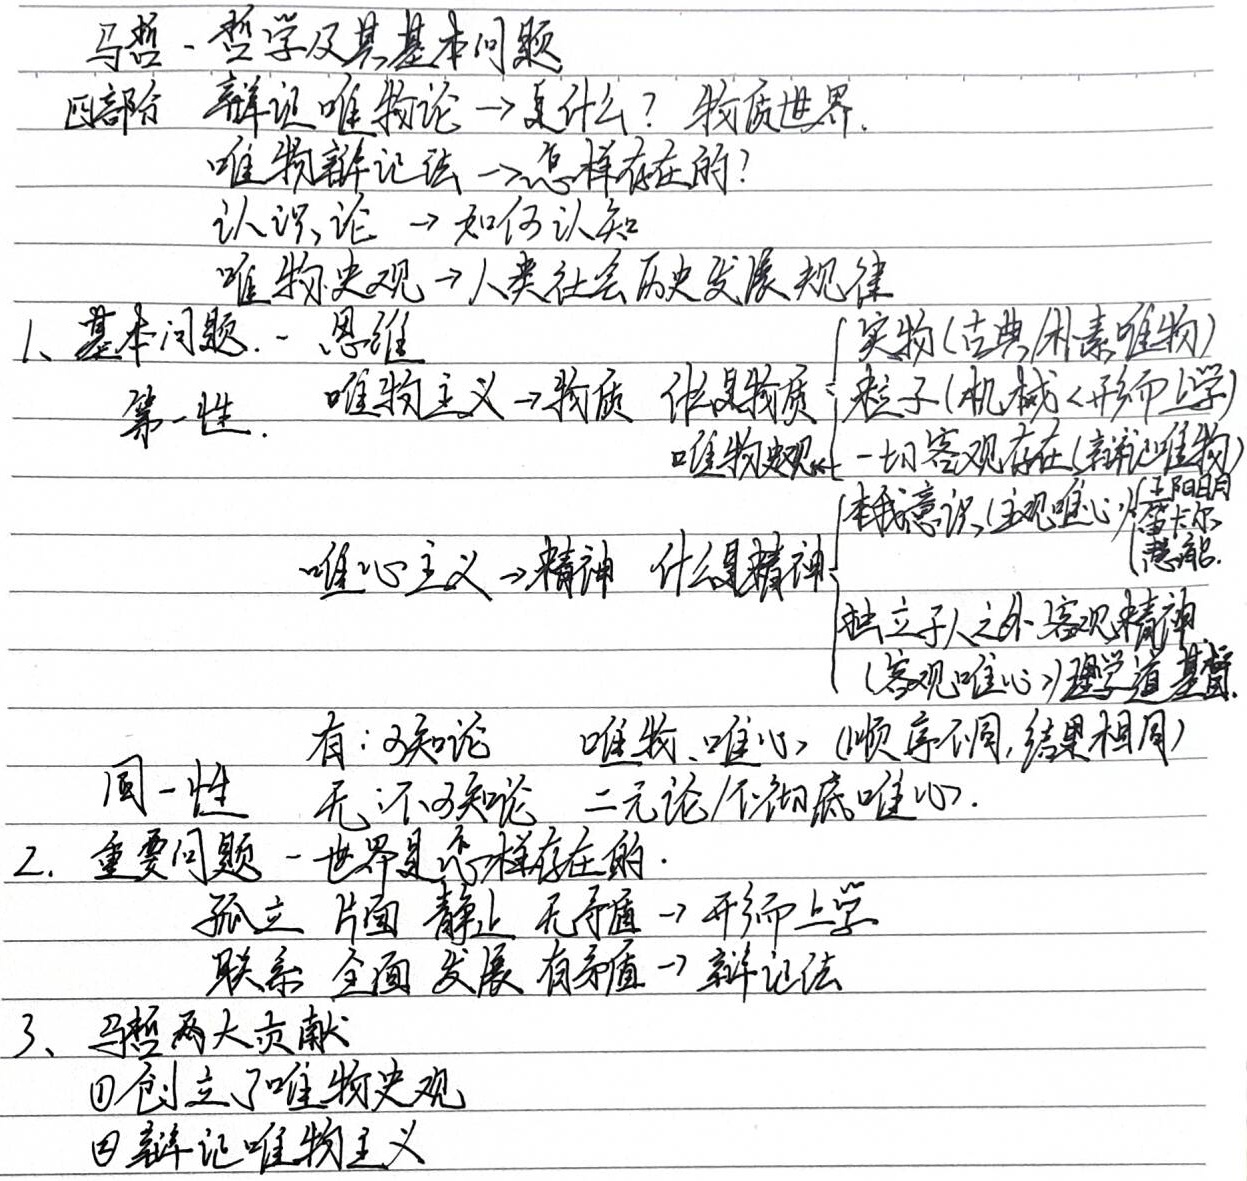 马哲-哲学及其基本问题
四部分 辩证唯物论→是什么? 物质世界.
唯物辩证法→怎样存在的?
认识论→如何认知
唯物史观→人类社会历史发展规律
1、基本问题.- 思维
第一性.
唯物主义→物质 什么是物质
实物(古典/朴素唯物)
粒子(机械<形而上学)
唯物史观←
一切客观存在(辩证唯物)
唯心主义→精神 什么是精神
本我意识(主观唯心)
王阳明
笛卡尔
慧能.
独立于人之外客观精神
(客观唯心)理学道基督.
同一性
有:可知论 唯物、唯心 (顺序不同,结果相同)
无:不可知论 二元论/不彻底唯心.
2. 重要问题-世界是怎样存在的.
孤立 片面 静止 无矛盾→形而上学
联系 全面 发展 有矛盾→辩证法
3、马哲两大贡献
①创立了唯物史观
②辩证唯物主义